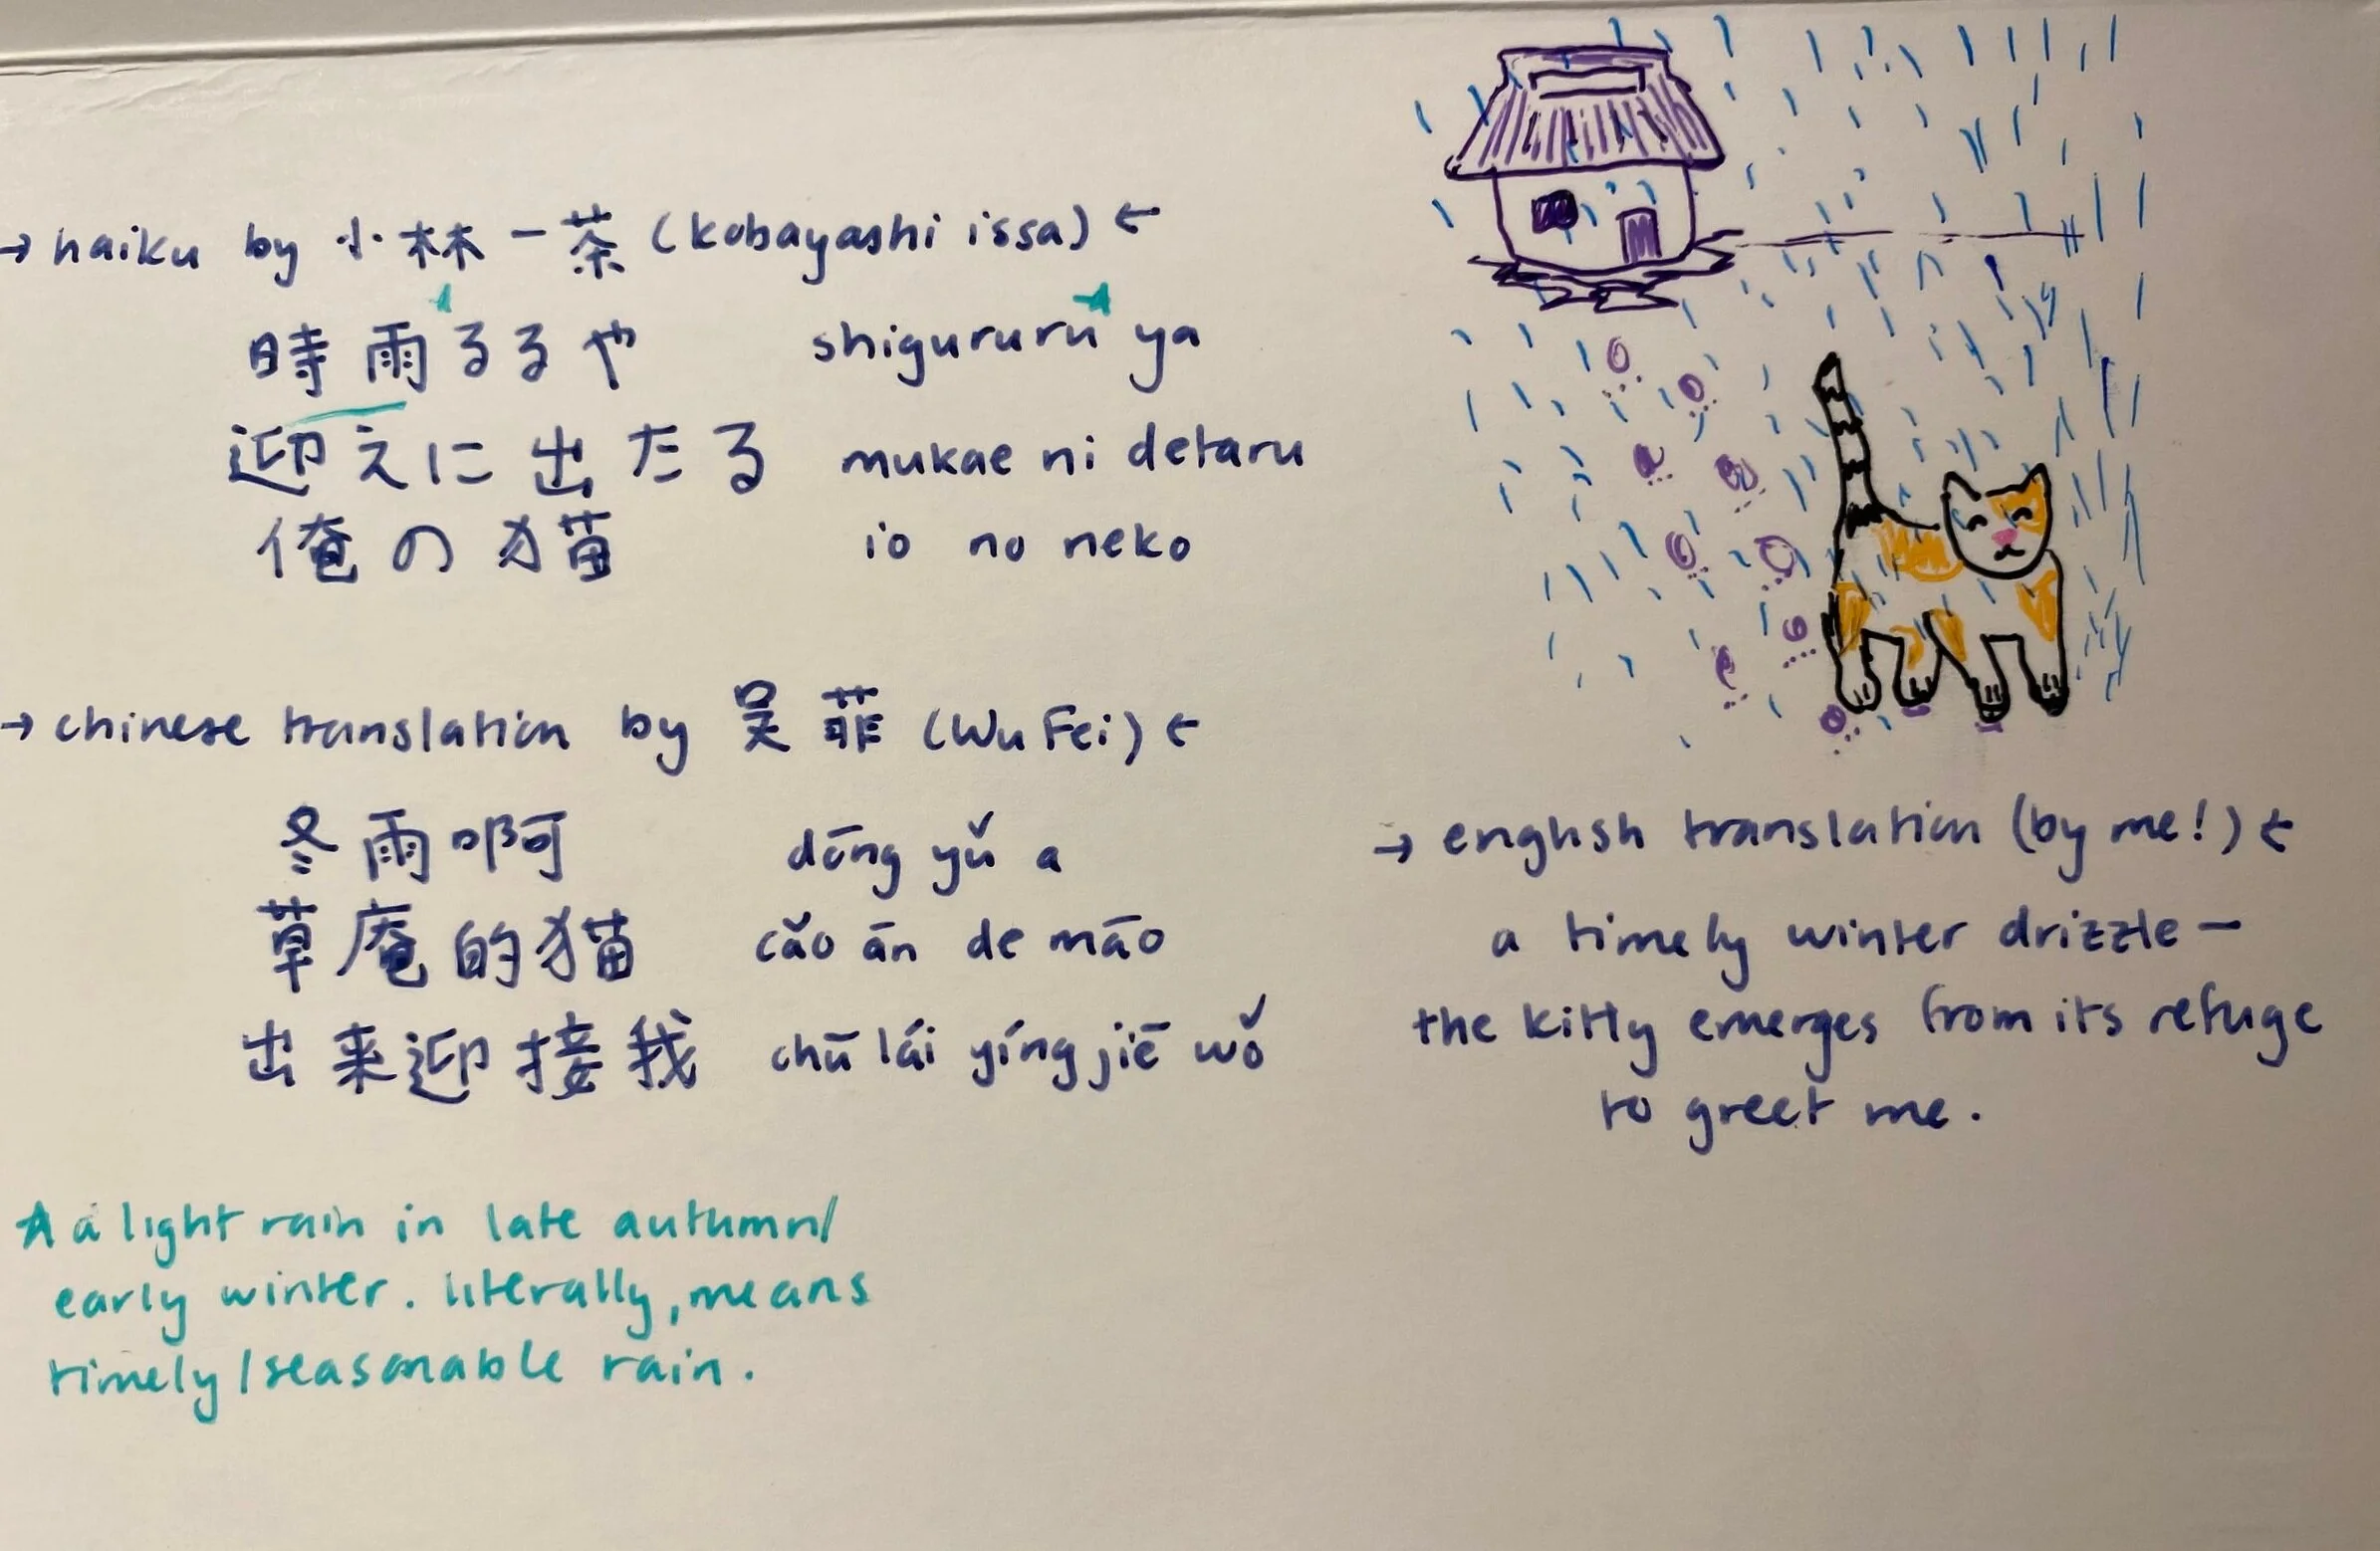 → haiku by 小林一茶 (kobayashi issa) ←
時雨るるや shigururu ya
迎えに出たる mukae ni detaru
俺の猫 io no neko
→ chinese translation by 吴菲 (Wu Fei) ←
冬雨啊 dōng yǔ a
草庵的猫 cǎo ān de māo
出来迎接我 chū lái yíng jiē wǒ
→ english translation (by me!) ←
a timely winter drizzle—
the kitty emerges from its refuge
to greet me.
★ a light rain in late autumn/
early winter. literally, means
timely/seasonable rain.